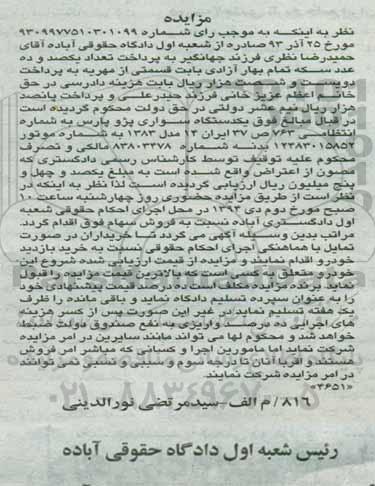 مزایده
نظر به اینکه به موجب رای شماره ۹۳۰۹۹۷۷۵۱۰۳۰۱۰۹۹
مورخ ۲۵ آذر ۹۳ صادره از شعبه اول دادگاه حقوقی آباده آقای
حمیدرضا نظری فرزند جهانگیر به پرداخت تعداد یکصد و ده
عدد سکه تمام بهار آزادی بابت قسمتی از مهریه به پرداخت
دویست و شصت هزار ریال بابت هزینه دادرسی در حق
خانم اعظم عزیز خانی فرزند حیدرعلی و پرداخت پانصد
هزار ریال نیم عشر دولتی در حق دولت محکوم گردیده است
در قبال مبالغ فوق یکدستگاه سواری پژو پارس به شماره
انتظامی ۷۶۳ ص ۳۷ ایران ۱۴ مدل ۱۳۸۳ به شماره موتور
۱۲۳۸۳۰۱۵۸۵۲ بدنه شماره ۸۳۸۰۳۴۷۸ مالکی و تصرف
محکوم علیه توقیف توسط کارشناس رسمی دادگستری که
مصون از اعتراض واقع شده است به مبلغ یکصد و چهل و
پنج میلیون ریال ارزیابی گردیده است لذا نظر به اینکه در
نظر است از طریق مزایده حضوری روز چهارشنبه ساعت ۱۰
صبح مورخ دوم دی ۱۳۹۴ در محل اجرای احکام حقوقی شعبه
اول دادگستری آباده نسبت به فروش سهام فوق اقدام گردد.
مراتب بدین وسیله آگهی می گردد تا خریداران در صورت
تمایل با هماهنگی اجرای احکام حقوقی نسبت به خرید بازدید
خودرو اقدام نمایند و مزایده از قیمت ارزیابی شده شروع این
خودرو متعلق به کسی است که بالاترین قیمت مزایده را قبول
نماید برنده مزایده مکلف است ده درصد قیمت پیشنهادی خود
را به عنوان سپرده تسلیم دادگاه نماید و باقی مانده را ظرف
یک هفته تسلیم نماید در غیر این صورت پس از کسر هزینه
های اجرایی ده درصد واریزی به نفع صندوق دولت ضبط
خواهد شد و محکوم لها می تواند مانند سایرین در امر مزایده
شرکت نماید اما مامورین اجرا و کسانی که مباشر امر فروش
هستند و اقربا آنان تا درجه سوم و سببی و نسبی نمی توانند
در امر مزایده شرکت نمایند.
«۳۶۵۱»
۸۱۶/ م الف -سیدمرتضی نورالدینی
رئیس شعبه اول دادگاه حقوقی آباده